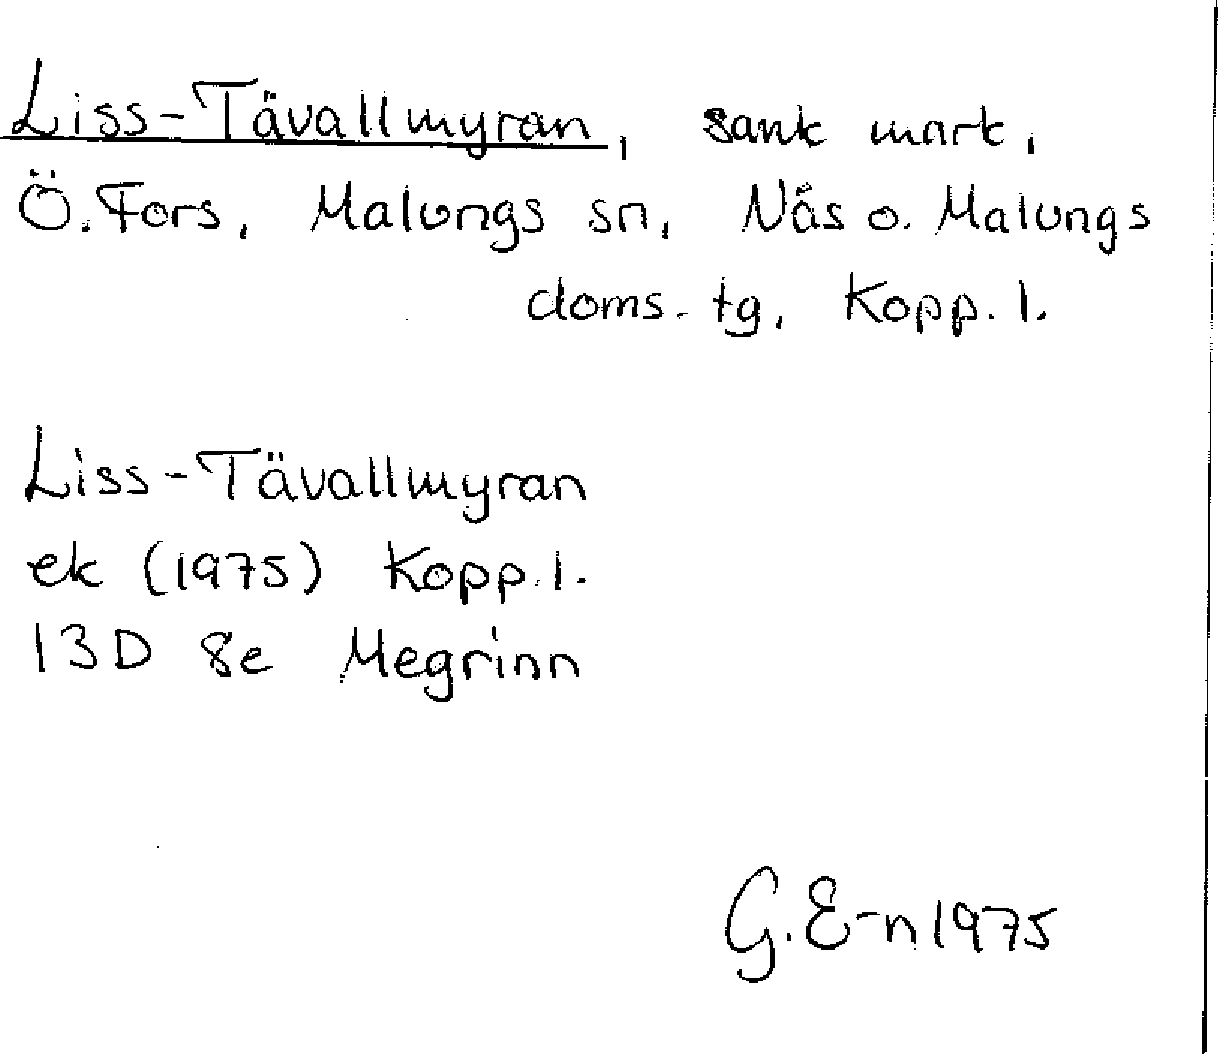 Liss-Tävallmyran, sank mark,
Ö. Fors, Malungs sn, Nås o. Malungs
doms. tg, Kopp. l.
Liss-Tävallmyran
ek (1975) Kopp. l.
13D 8e Megrinn
G. E-n 1975